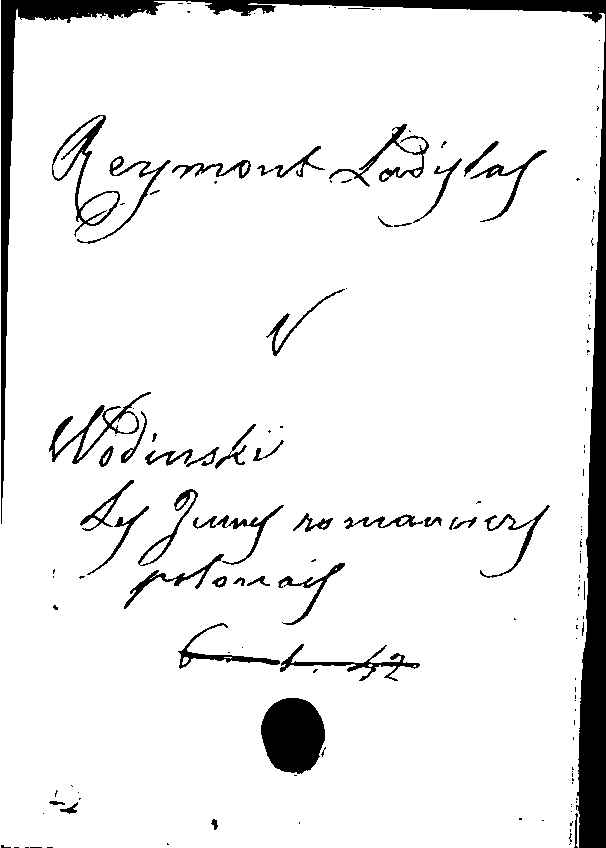 Reymont Ladislas
V
Wodinski
Les Jeunes romanciers
polonais
6. 1. 42